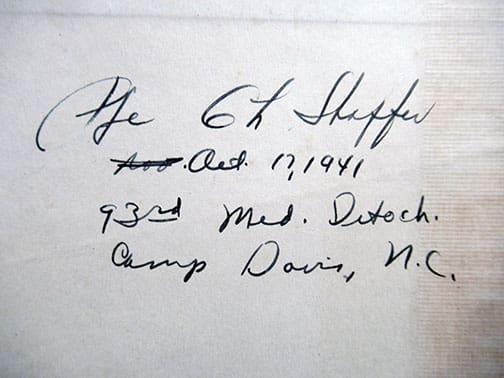 Pfc C L Shaffer
Oct. 17, 1941
93rd Med. Detach.
Camp Davis, N.C.